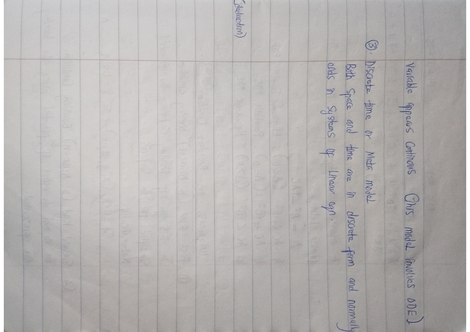 Variable appears Continous (This model involves ODE)
③. Discrete time or Meta model
Both Space and time are in discrete form and normally
ends in Systems of Linear eqn.